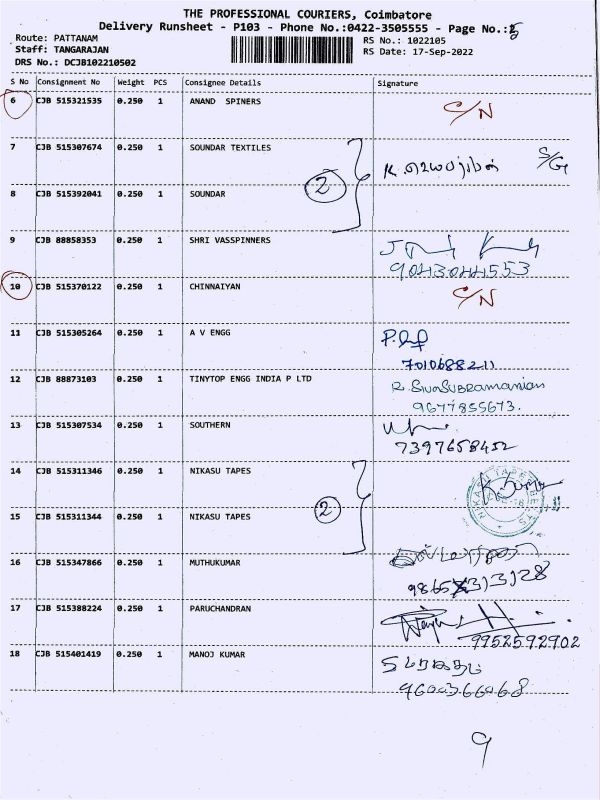 THE PROFESSIONAL COURIERS, Coimbatore
Delivery Runsheet - P103 - Phone No.:0422-3505555 - Page No.:
Route: PATTANAM
RS No.: 1022105
Staff: TANGARAJAN
RS Date: 17-Sep-2022
DRS No.: DCJB102210502
S No Consignment No Weight PCS Consignee Details Signature
6 CJB 515321535 0.250 1 ANAND SPINERS C/N
7 CJB 515307674 0.250 1 SOUNDAR TEXTILES
2
8 CJB 515392041 0.250 1 SOUNDAR
9 CJB 88858353 0.250 1 SHRI VASSPINNERS
9043044553
10 CJB 515370122 0.250 1 CHINNAIYAN C/N
11 CJB 515305264 0.250 1 A V ENGG
7010688211
12 CJB 88873103 0.250 1 TINYTOP ENGG INDIA P LTD R. SivaSubramanian
9677855673.
13 CJB 515307534 0.250 1 SOUTHERN
7397658452
14 CJB 515311346 0.250 1 NIKASU TAPES
2
15 CJB 515311344 0.250 1 NIKASU TAPES
16 CJB 515347866 0.250 1 MUTHUKUMAR
17 CJB 515388224 0.250 1 PARUCHANDRAN
9952592902
18 CJB 515401419 0.250 1 MANOJ KUMAR
9600366068
9